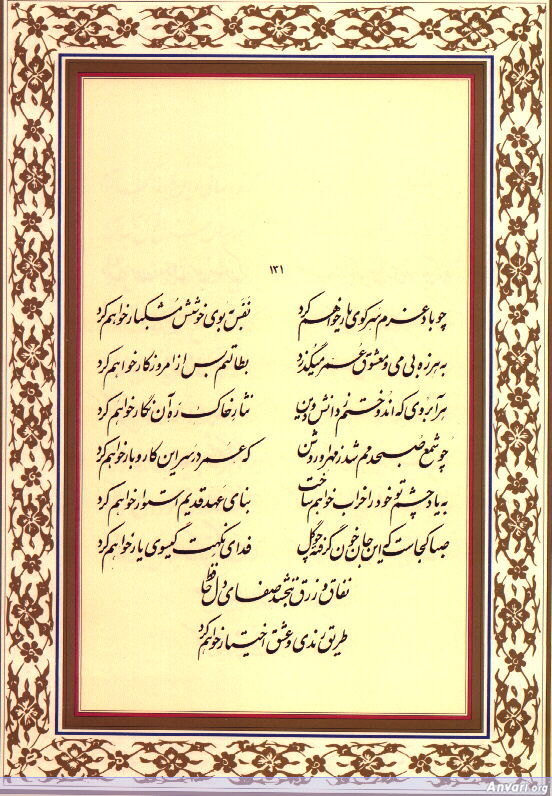 ۱۳۱
چو باد عزم سر کوی یار خواهم کرد نفس ببوی خوشش مشکبار خواهم کرد
به هرزه بی می و معشوق عمر میگذرد بطالتم بس از امروز کار خواهم کرد
هر آبروی که اندوختم ز دانش و دین نثار خاک ره آن نگار خواهم کرد
چو شمع صبحدمم شد ز مهر او روشن که عمر در سر این کار و بار خواهم کرد
به یاد چشم تو خود را خراب خواهم ساخت بنای عهد قدیم استوار خواهم کرد
صبا کجاست که این جان خون گرفته چو گل فدای نکهت گیسوی یار خواهم کرد
نفاق و زرق نبخشد صفای دل حافظ
طریق رندی و عشق اختیار خواهم کرد
Anvari.org